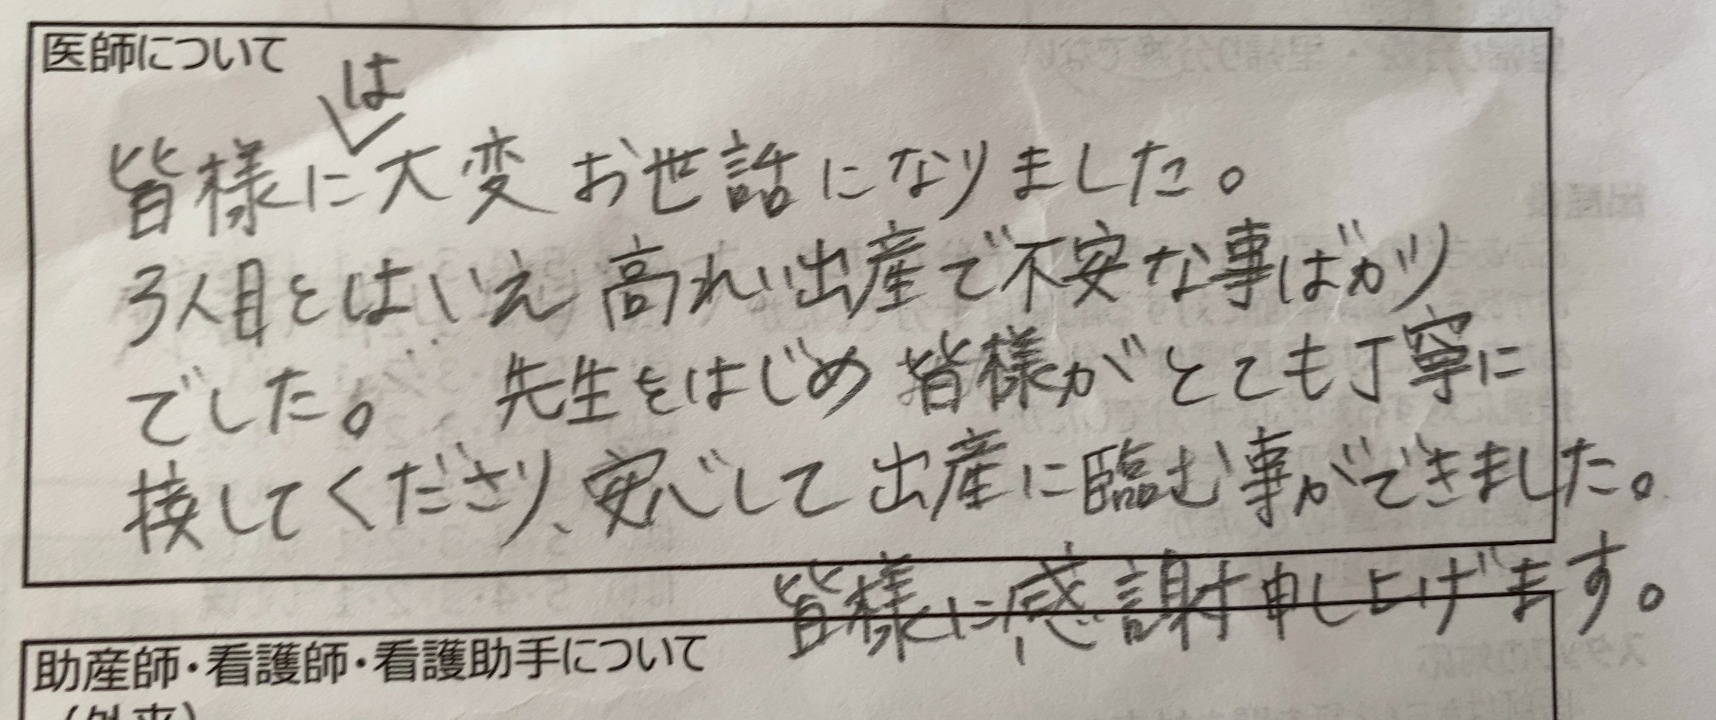 医師について
皆様には大変お世話になりました。
3人目とはいえ高れい出産で不安な事ばかり
でした。 先生をはじめ皆様がとても丁寧に
接してくださり、安心して出産に臨む事ができました。
皆様に感謝申し上げます。
助産師・看護師・看護助手について
(外来)